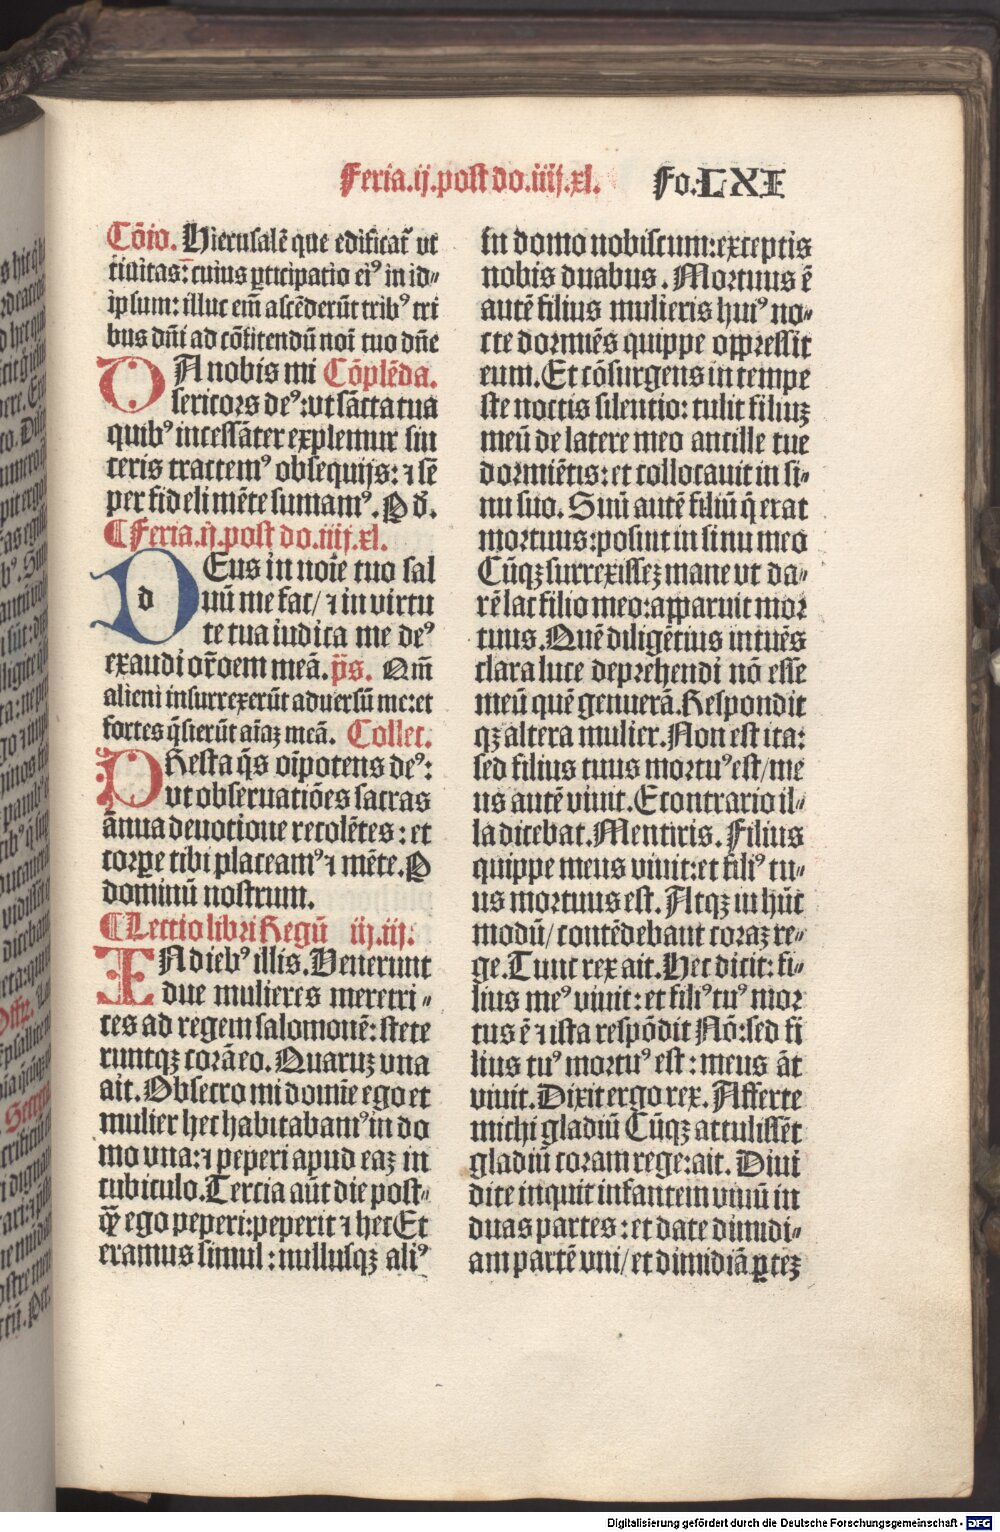 Feria.ij.post do.iiij.xl. Fo.LXI
Cōio. Hierusalē que edificat᷑ ut
ciuitas: cuius ꝑticipatio ei⁹ in id⸗
ipsum: illuc em̄ ascēderūt trib⁹ tri
bus dn̄i ad cōfitendū noī tuo dn̄e
DA nobis mi Cōplēda.
sericors de⁹: ut sācta tua
quib⁹ incessāter explemur sin
ceris tractem⁹ obsequijs: ⁊ sē
per fideli mēte sumam⁹. P d̄.
¶ Feria.ij.post do.iiij.xl.
dEus in noīe tuo sal
uū me fac/ ⁊ in virtu
te tua iudica me de⁹
exaudi or̄oem meā. p̄s. Qm̄
alieni insurrexerūt aduersū me: et
fortes q̄sierūt aīaꝫ meā. Collec.
PResta q̄s oīpotens de⁹:
ut obseruatiōes sacras
ānua deuotione recolētes: et
corꝑe tibi placeam⁹ ⁊ mēte. P
dominū nostrum.
¶ Lectio libri Regū iij.iij.
IN dieb⁹ illis. Venerunt
due mulieres meretri⸗
ces ad regem salomonē: stete
runtqꝫ corā eo. Quaruꝫ vna
ait. Obsecro mi domīe ego et
mulier hec habitabam⁹ in do
mo vna: ⁊ peperi apud eaꝫ in
cubiculo. Tercia aūt die post⸗
qꝫ̄ ego peperi: peperit ⁊ hec Et
eramus simul: nullusqꝫ ali⁹
in domo nobiscum: exceptis
nobis duabus. Mortuus ē
autē filius mulieris hui⁹ no⸗
cte dormiēs quippe oppressit
eum. Et cōsurgens in tempe
ste noctis silentio: tulit filiuꝫ
meū de latere meo ancille tue
dormiētis: et collocauit in si⸗
nu suo. Suū autē filiū q̄ erat
mortuus: posuit in sinu meo
Cūqꝫ surrexisseꝫ mane vt da⸗
rē lac filio meo: apparuit mor
tuus. Quē diligētius intuēs
clara luce deprehendi nō esse
meū quē genuerā. Respondit
qꝫ altera mulier. Non est ita:
sed filius tuus mortu⁹ est/ me
us autē viuit. Econtrario il⸗
la dicebat. Mentiris. Filius
quippe meus viuit: et fili⁹ tu⸗
us mortuus est. Atqꝫ in hūc
modū/ contēdebant coraꝫ re⸗
ge. Tunc rex ait. Hec dicit: fi⸗
lius me⁹ viuit: et fili⁹ tu⁹ mor
tus ē ⁊ ista respōdit Nō: sed fi
lius tu⁹ mortu⁹ est: meus āt
viuit. Dixit ergo rex. Afferte
michi gladiū Cūqꝫ attulissēt
gladiū coram rege: ait. Diui
dite inquit infantem viuū in
duas partes: et date dimidi⸗
am partē vni/ et dimidiā ꝑteꝫ
Digitalisierung gefördert durch die Deutsche Forschungsgemeinschaft - DFG